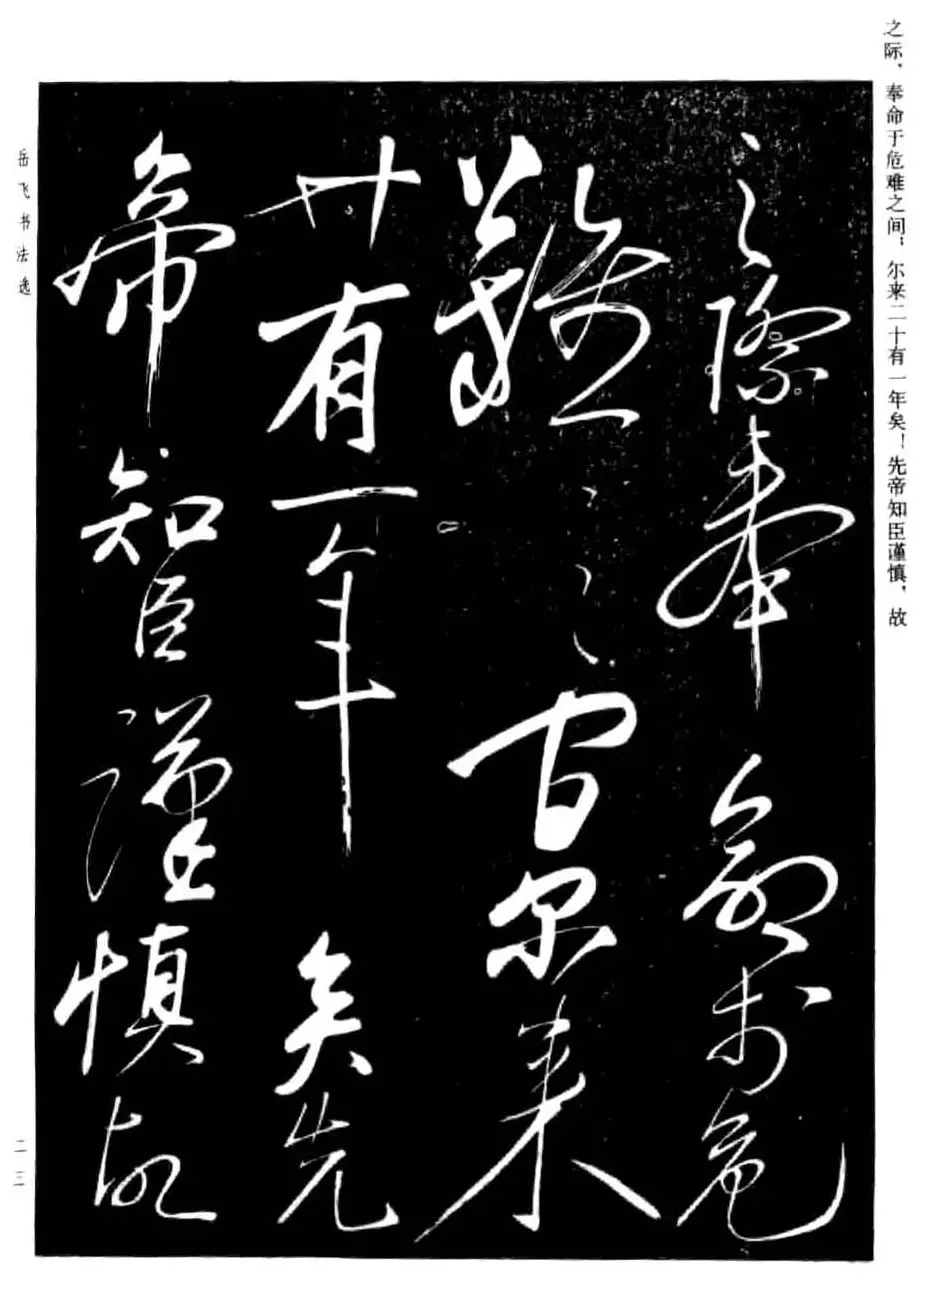 之际，奉命于危难之间；尔来二十有一年矣！先帝知臣谨慎，故
之際奉命於危
難之间尔来
廿有一年矣先
帝知臣谨慎故
岳飞书法选
二三